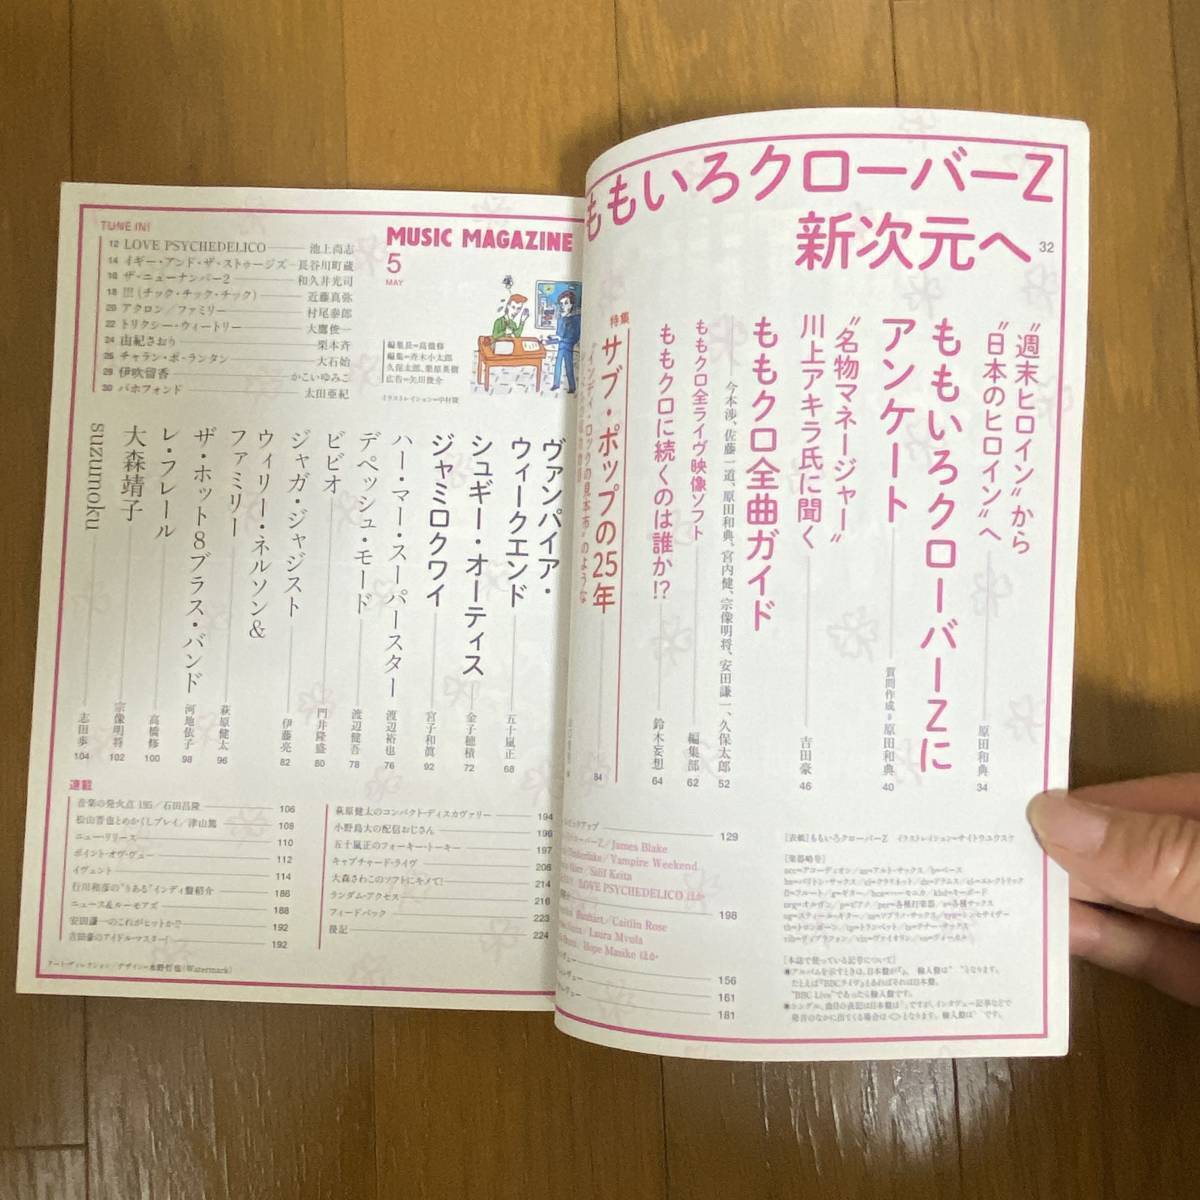 ももいろクローバーZ
新次元へ 32
"週末ヒロイン"から
"日本のヒロイン"へ
原田和典
34
ももいろクローバーZに
アンケート
質問作成=原田和典
40
"名物マネージャー"
川上アキラ氏に聞く
吉田豪
46
ももクロ全曲ガイド
今本渉、佐藤一道、原田和典、宮内健、宗像明将、安田謙一、久保太郎
52
ももクロ全ライヴ映像ソフト
編集部
62
ももクロに続くのは誰か!?
鈴木妄想
64
特集
サブ・ポップの25年
84
TUNE IN!
12 LOVE PSYCHEDELICO 池上尚志
14 イギー・アンド・ザ・ストゥージズ 長谷川町蔵
16 ザ・ニューナンバー2 和久井光司
18 !!!(チック・チック・チック) 近藤真弥
20 アクロン/ファミリー 村尾泰郎
22 トリクシー・ウィートリー 大鷹俊一
24 由紀さおり 栗本斉
26 チャラン・ポ・ランタン 大石始
29 伊吹留香 かこいゆみこ
30 パホフォンド 太田亜紀
MUSIC MAGAZINE
5
MAY
編集長=高橋修
久保太郎、栗原英樹
広告=矢川俊介
ヴァンパイア・
ウィークエンド
五十嵐正
68
シュギー・オーティス
金子穂積
72
ジャミロクワイ
宮子和眞
92
ハー・マー・スーパースター
渡辺裕也
76
デペッシュ・モード
渡辺健吾
78
ビビオ
門井隆盛
80
ジャガ・ジャジスト
伊藤亮
82
ウィリー・ネルソン&
ファミリー
萩原健太
96
ザ・ホット8ブラス・バンド
河地依子
98
レ・フレール
高橋修
100
大森靖子
宗像明将
102
suzumoku
志田歩
104
連載
音楽の発火点 195/石田昌隆 106
松山晋也とめかくしプレイ/津山篤 108
ニュー・リリース 110
ポイント・オヴ・ヴュー 112
イヴェント 114
行川和彦の"りある"インディ盤紹介 186
ニュース&ルーモアズ 188
安田謙一のこれがヒットか!? 192
吉田豪のアイドル・マスター! 192
萩原健太のコンパクト・ディスカヴァリー 194
小野島大の配信おじさん 196
五十嵐正のフォーキー・トーキー 197
キャプチャード・ライヴ 208
大森さわこのソフトにキメて! 214
ランダム・アクセス 216
フィードバック 223
後記 224
アート・ディレクション/デザイン=水野哲也(Watermark)
129
James Blake
Vampire Weekend
Salif Keita
LOVE PSYCHEDELICO ほか
198
Caitlin Rose
Laura Mvula
Hope Masike ほか
156
161
181
[表紙]ももいろクローバーZ イラストレイション=サイトウユウスケ
[楽器略号]
acc=アコーディオン/as=アルト・サックス/b=ベース
bs=バリトン・サックス/cl=クラリネット/ds=ドラムス/el=エレクトリック
fl=フルート/g=ギター/hca=ハーモニカ/kbd=キーボード
org=オルガン/p=ピアノ/per=各種打楽器/s=各種サックス
sg=スティール・ギター/ss=ソプラノ・サックス/syn=シンセサイザー
tb=トロンボーン/tp=トランペット/ts=テナー・サックス
vib=ヴィブラフォン/vln=ヴァイオリン/vo=ヴォーカル
[本誌で使っている記号について]